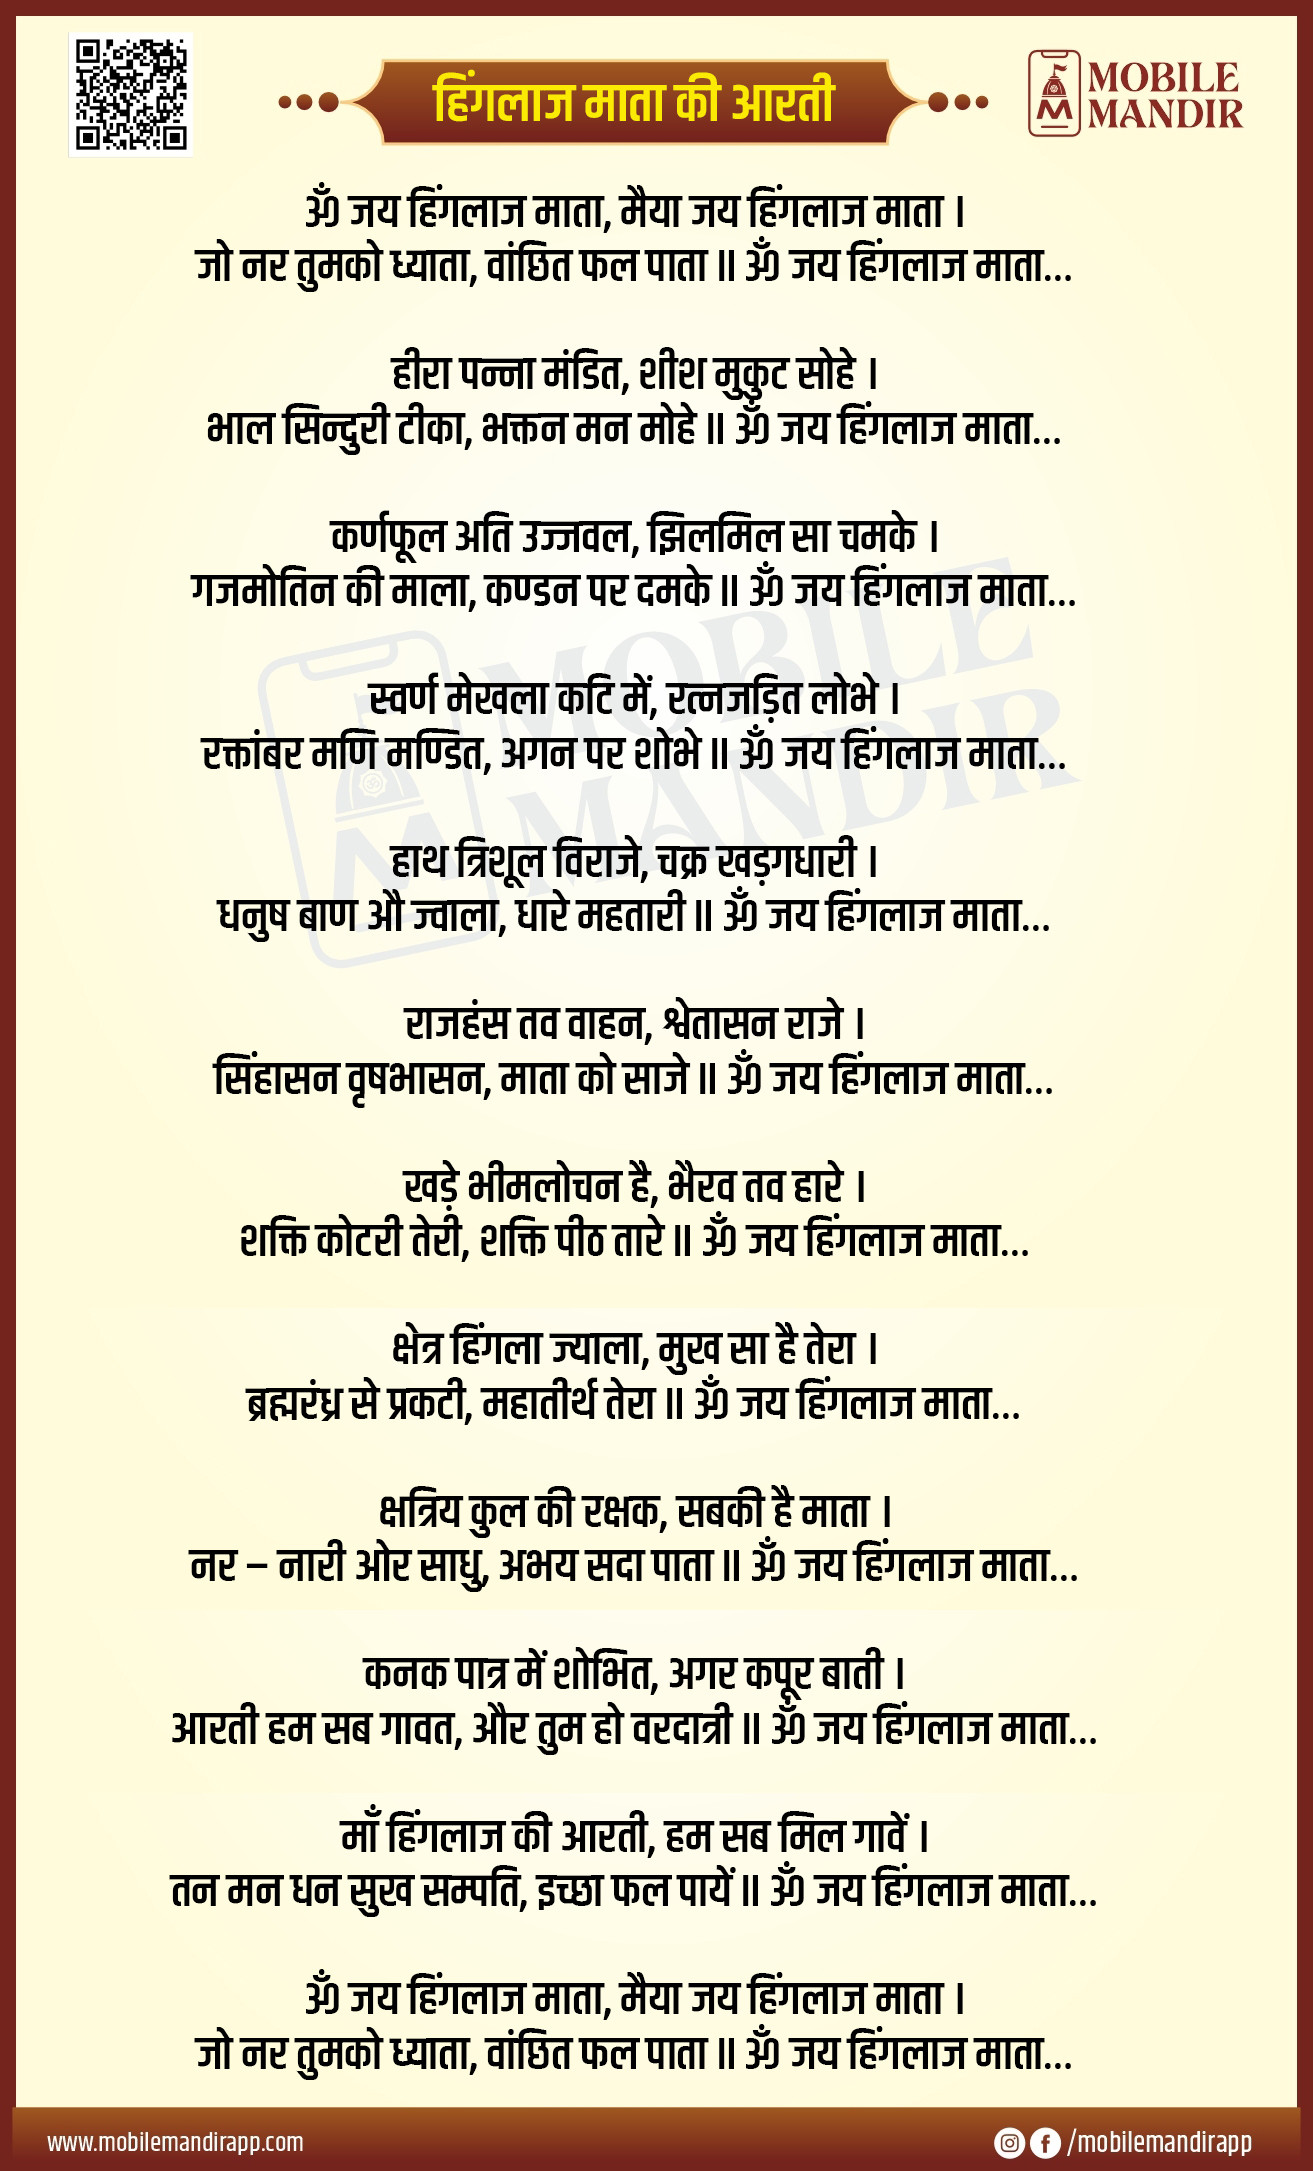 हिंगलाज माता की आरती
MOBILE
MANDIR
ॐ जय हिंगलाज माता, मैया जय हिंगलाज माता ।
जो नर तुमको ध्याता, वांछित फल पाता ॥ ॐ जय हिंगलाज माता...
हीरा पन्ना मंडित, शीश मुकुट सोहे ।
भाल सिन्दुरी टीका, भक्तन मन मोहे ॥ ॐ जय हिंगलाज माता...
कर्णफूल अति उज्जवल, झिलमिल सा चमके ।
गजमोतिन की माला, कण्डन पर दमके ॥ ॐ जय हिंगलाज माता...
स्वर्ण मेखला कटि में, रत्नजड़ित लोभे ।
रक्तांबर मणि मण्डित, अगन पर शोभे ॥ ॐ जय हिंगलाज माता...
हाथ त्रिशूल विराजे, चक्र खड़गधारी ।
धनुष बाण औ ज्वाला, धारे महतारी ॥ ॐ जय हिंगलाज माता...
राजहंस तव वाहन, श्वेतासन राजे ।
सिंहासन वृषभासन, माता को साजे ॥ ॐ जय हिंगलाज माता...
खड़े भीमलोचन है, भैरव तव हारे ।
शक्ति कोटरी तेरी, शक्ति पीठ तारे ॥ ॐ जय हिंगलाज माता...
क्षेत्र हिंगला ज्याला, मुख सा है तेरा ।
ब्रह्मरंध्र से प्रकटी, महातीर्थ तेरा ॥ ॐ जय हिंगलाज माता...
क्षत्रिय कुल की रक्षक, सबकी है माता ।
नर – नारी ओर साधु, अभय सदा पाता ॥ ॐ जय हिंगलाज माता...
कनक पात्र में शोभित, अगर कपूर बाती ।
आरती हम सब गावत, और तुम हो वरदात्री ॥ ॐ जय हिंगलाज माता...
माँ हिंगलाज की आरती, हम सब मिल गावें ।
तन मन धन सुख सम्पति, इच्छा फल पायें ॥ ॐ जय हिंगलाज माता...
ॐ जय हिंगलाज माता, मैया जय हिंगलाज माता ।
जो नर तुमको ध्याता, वांछित फल पाता ॥ ॐ जय हिंगलाज माता...
MOBILE
MANDIR
www.mobilemandirapp.com
/mobilemandirapp